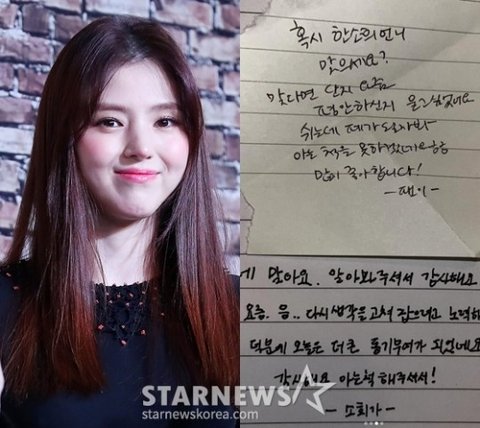 혹시 한소희언니
맞으세요?
맞다면 단지 요즘
평안하신지 묻고싶었어요
쉬는데 제가 도와
아는 척을 못하겠
많이 좋아합니다!
-팬이-
네 맞아요. 알아봐주셔서 감사해요
요즘. 음.. 다시 생각을 고쳐 잡으려고 노력하
덕분에 오늘은 더 큰 동기부여가 되었네요
감사해요 아는척 해주셔서!
- 소희가 -
STARNEWS
starnewskorea.com